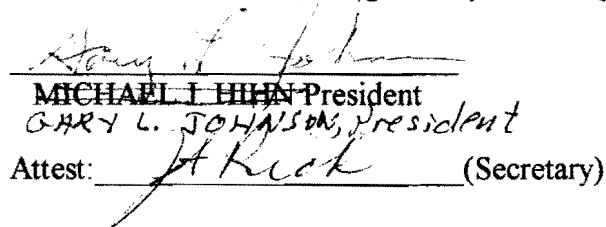 Gary L. Johnson
MICHAEL J. HIHN President
GARY L. JOHNSON, President
Attest: (Secretary)